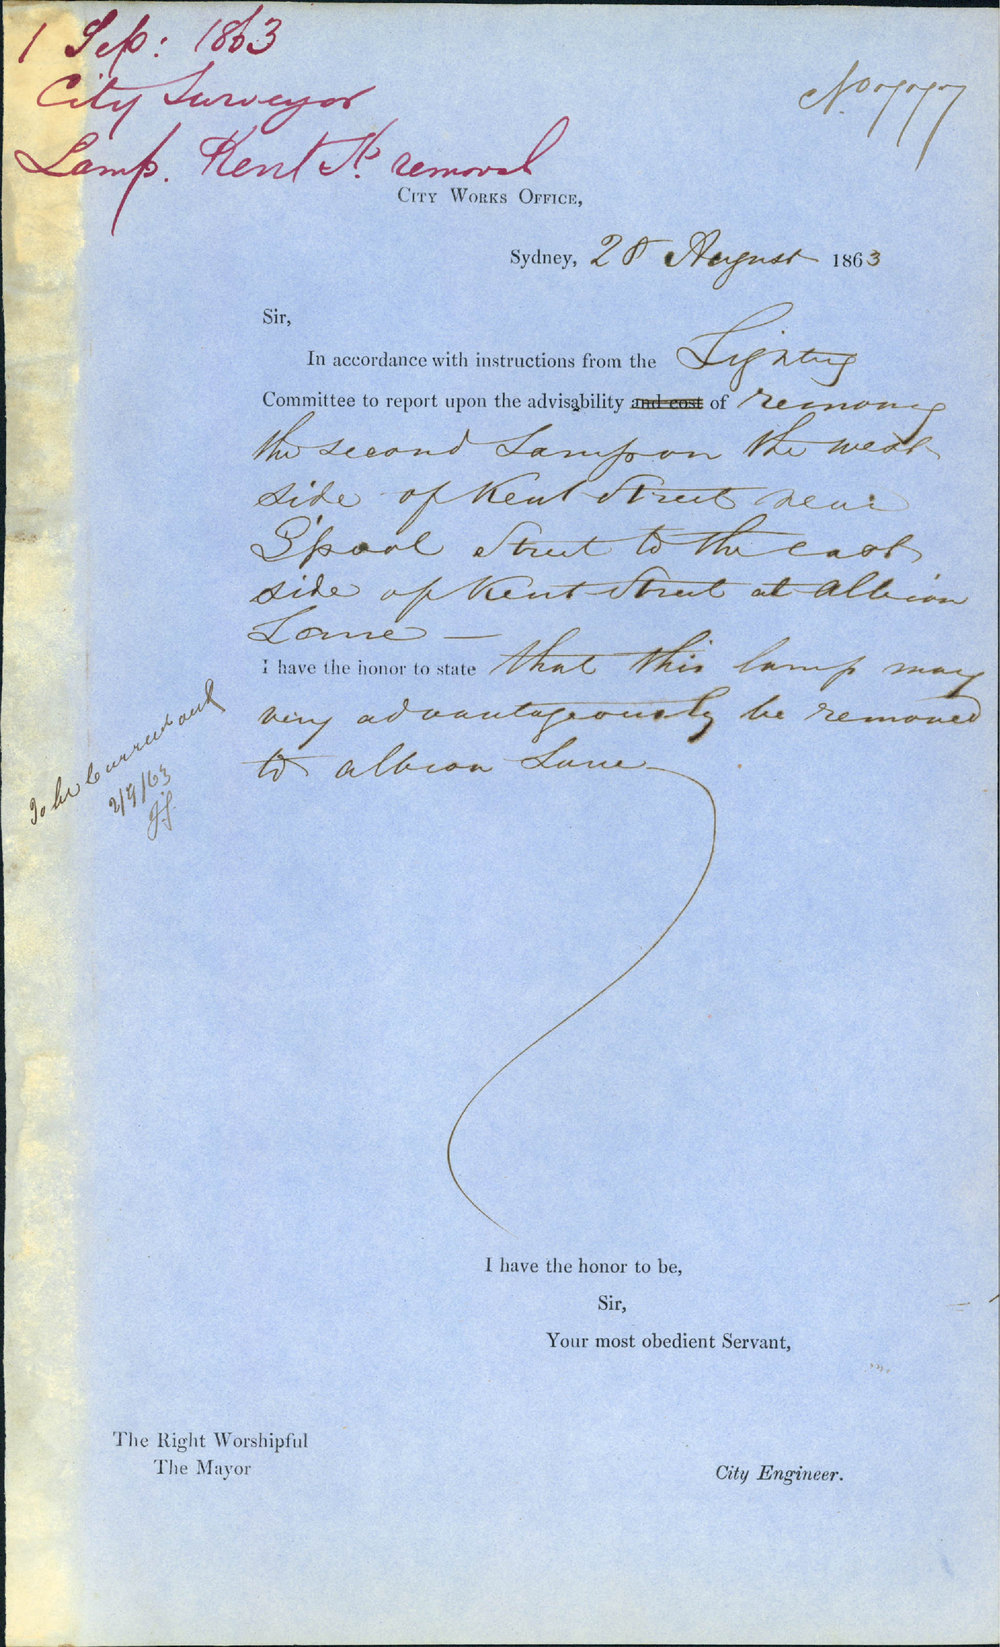 1 Sep: 1863
City Surveyor
Lamp. Kent St. removal
No 777
City Works Office,
Sydney, 28 August 1863
Sir,
In accordance with instructions from the Lighting
Committee to report upon the advisability and cost of removing
the second Lamp on the west
side of Kent Street near
L'pool Street to the east
side of Kent Street at Albion
Lane —
I have the honor to state that this lamp may
very advantageously be removed
to Albion Lane
To be carried out
2/9/63
I have the honor to be,
Sir,
Your most obedient Servant,
The Right Worshipful
The Mayor
City Engineer.